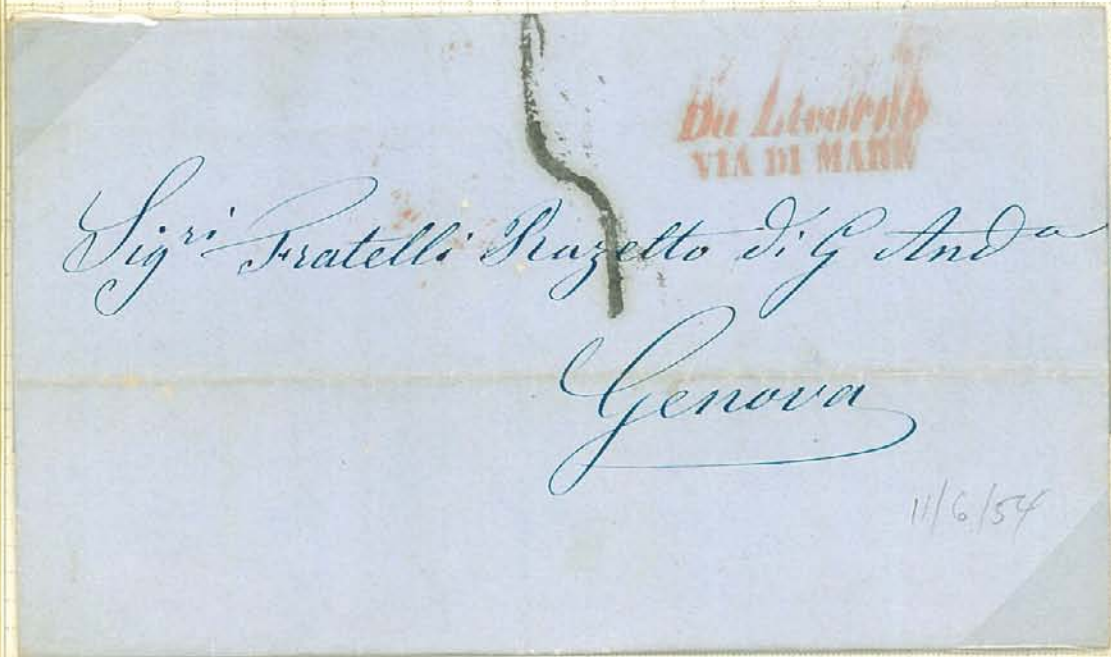 Da Livorno
VIA DI MARE
Sigri Fratelli Razetto di G Anda
Genova
11/6/54